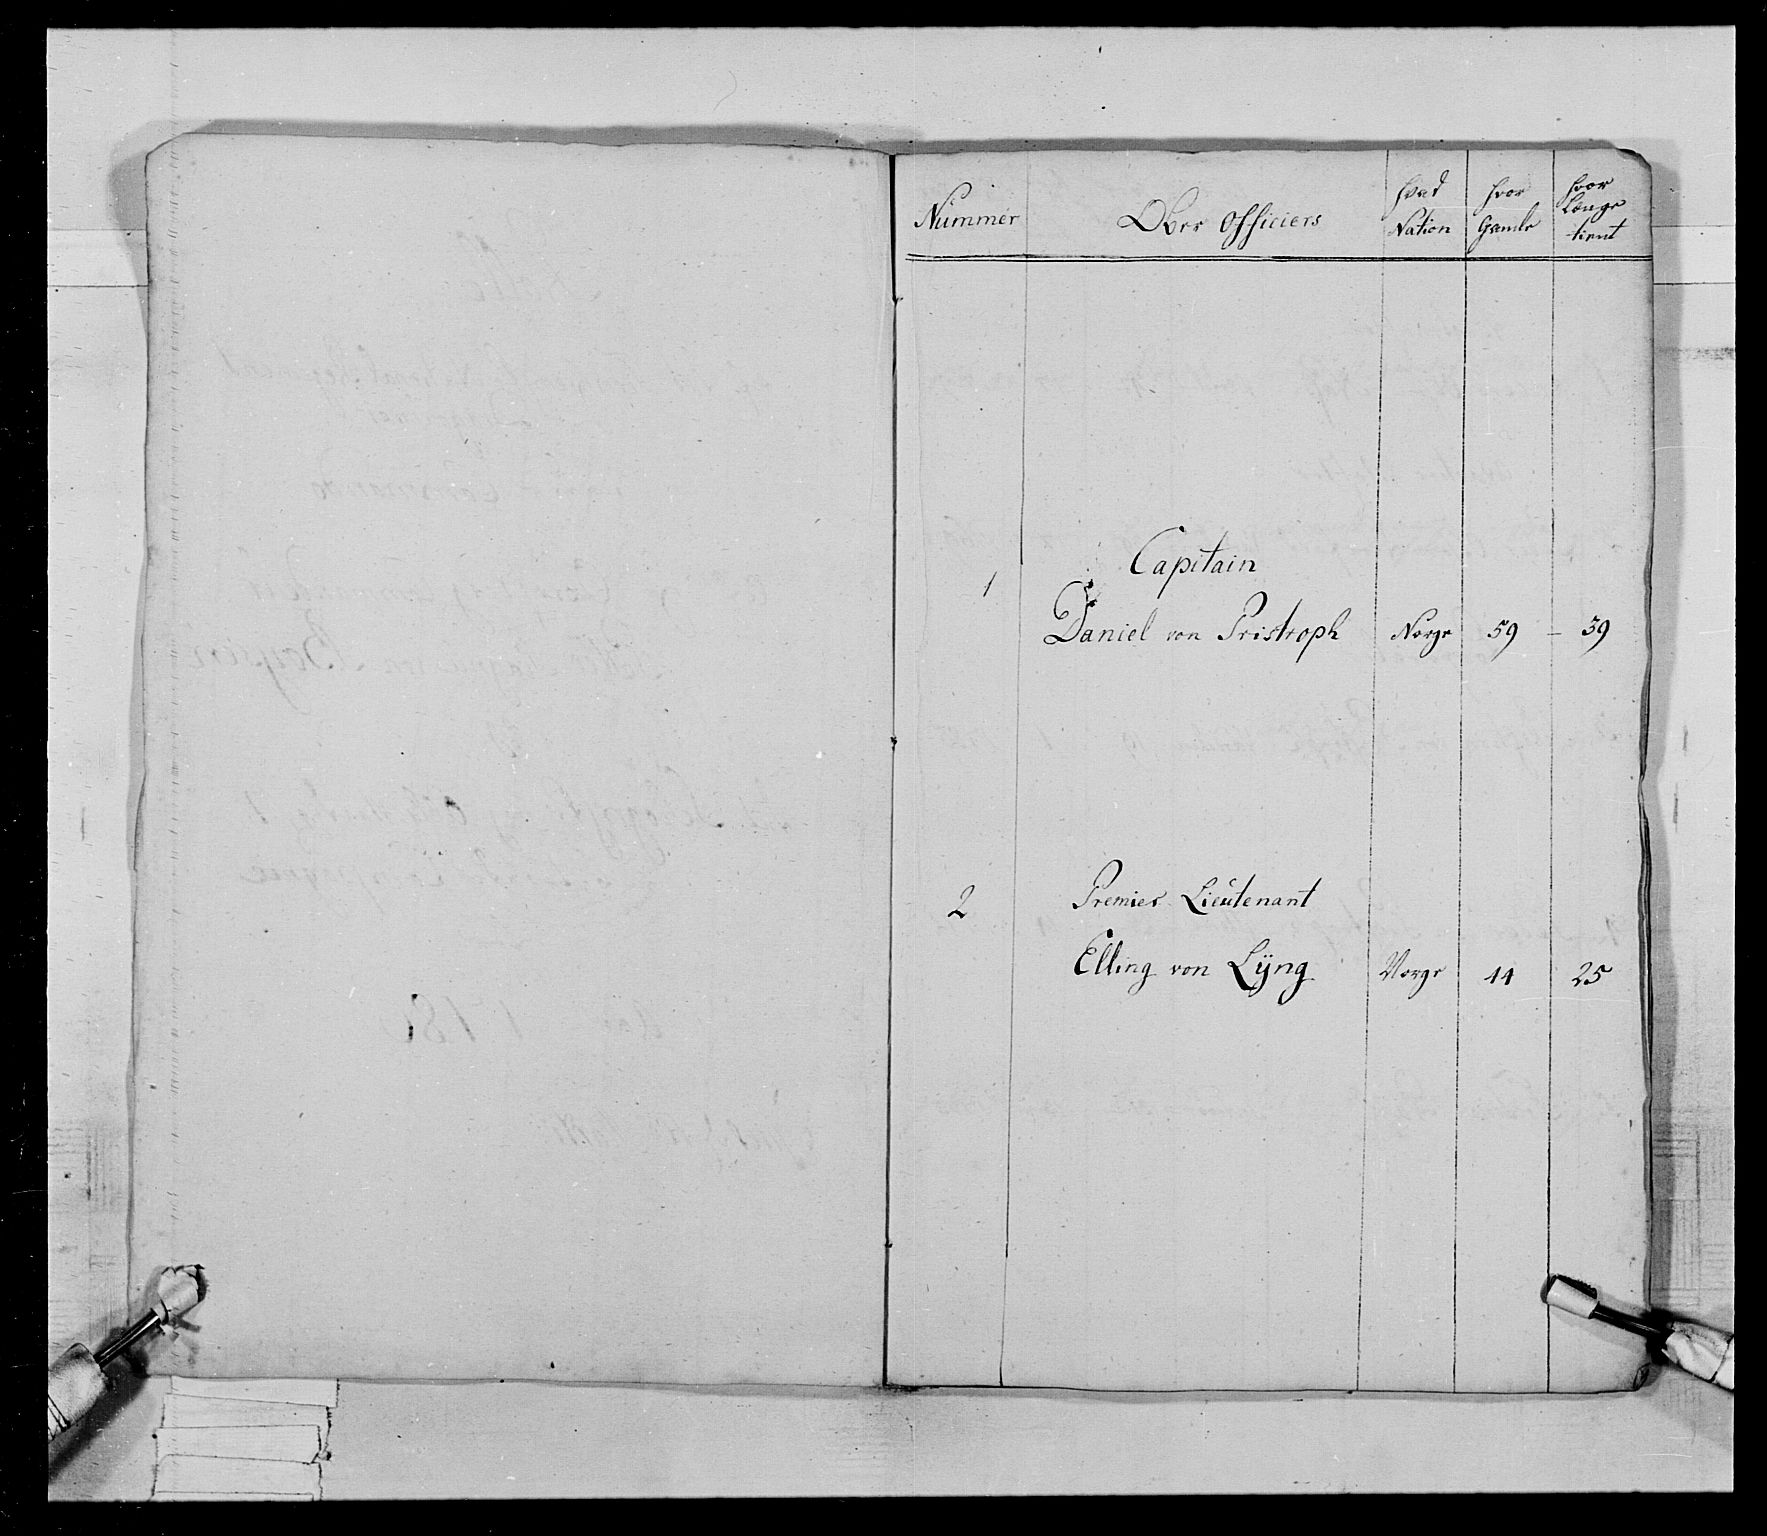 Nummer Ober Officiers hvad Nation hvor Gamle hvor Længe tient
Capitain
1
Daniel von Pristroph Norge 59 – 39
Premier Lieutenant
2
Elling von Lÿng Norge 44 25